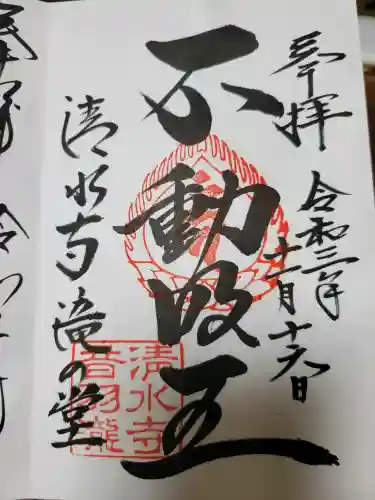 奉拝
令和三年
十一月十六日
不動明王
清水寺 滝の堂
清水寺
音羽瀧